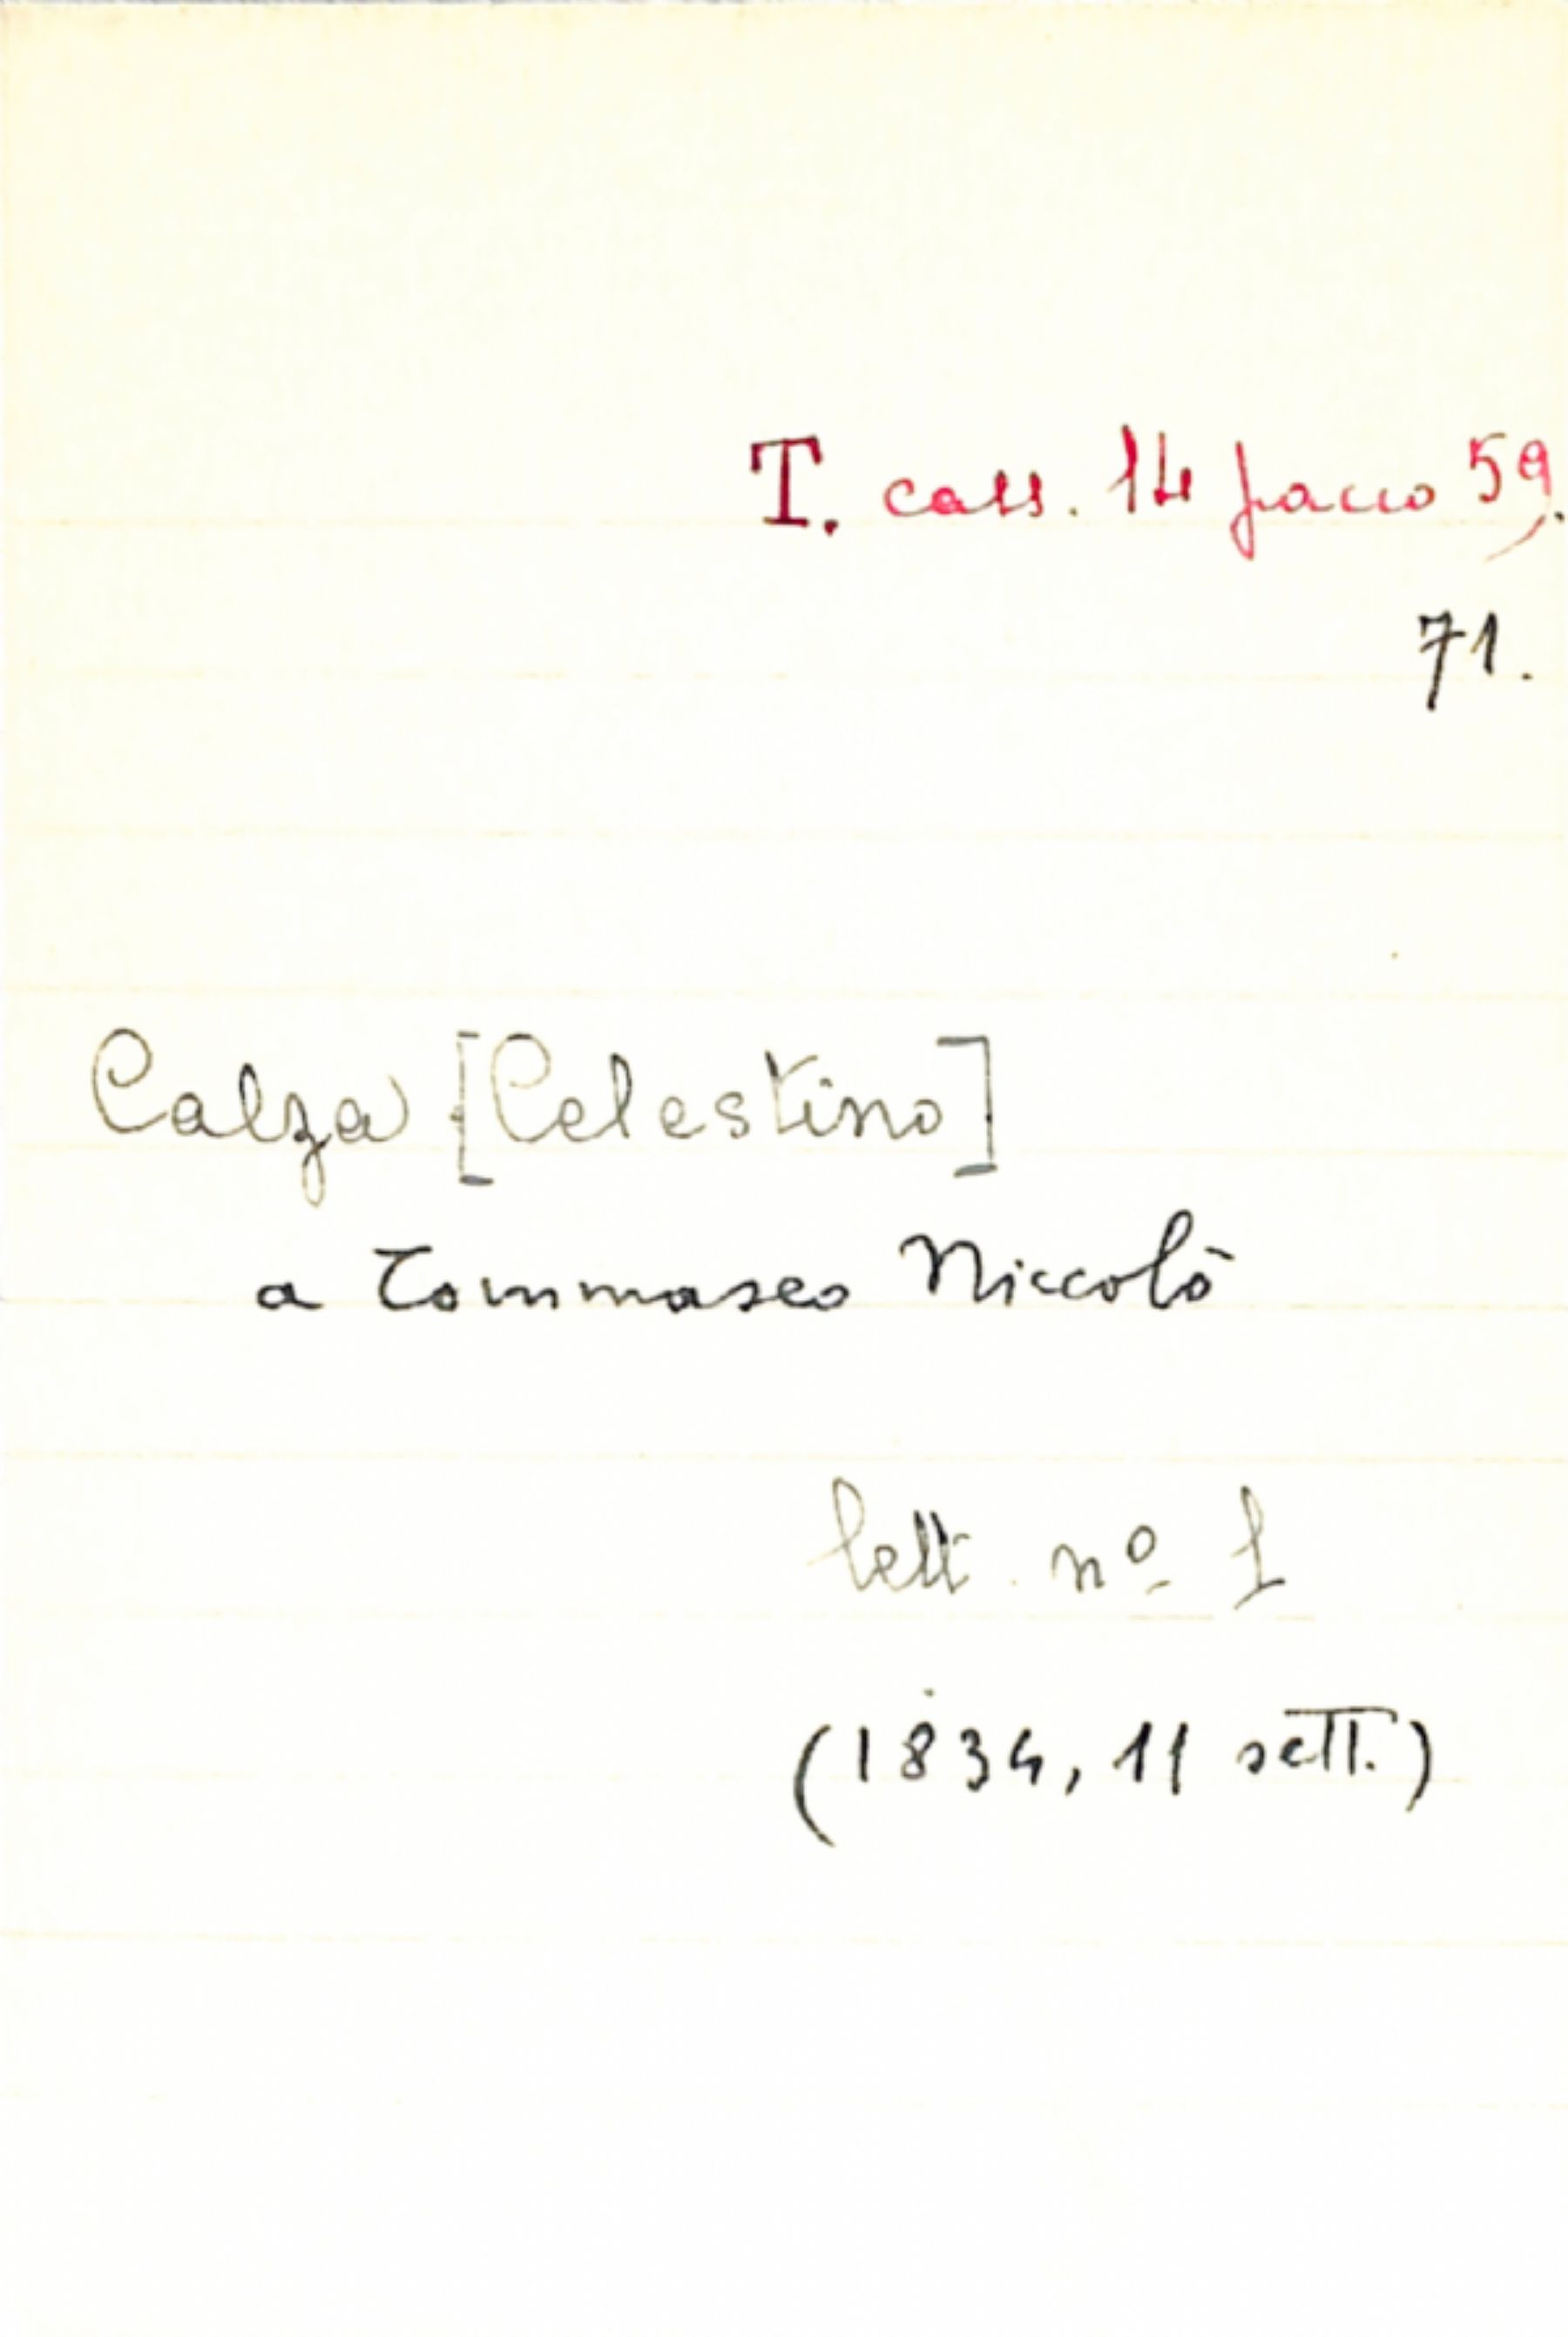 T. cass. 14 pacco 59.
71.
Calza [Celestino]
a Tommaseo Niccolò
lett. nº 1
(1834, 11 sett.)